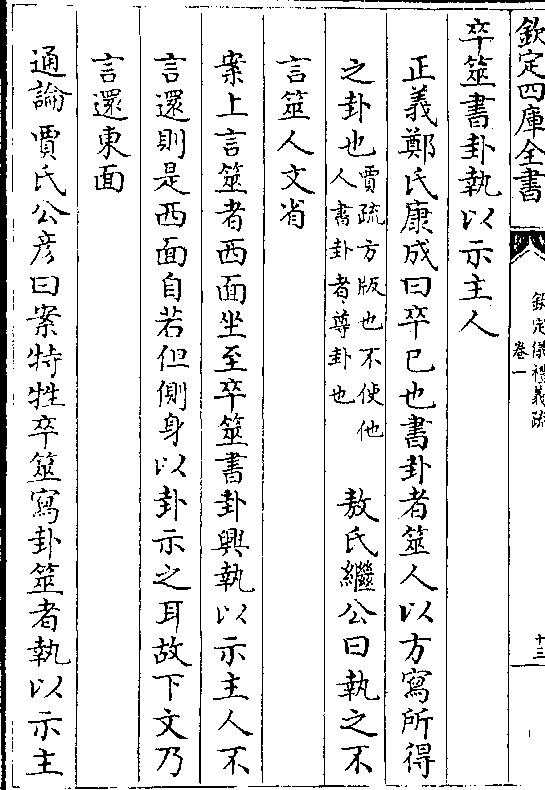 欽定四庫全書
欽定儀禮義疏
卷一
十三
卒筮書卦執以示主人
正義鄭氏康成曰卒已也書卦者筮人以方寫所得
之卦也賈疏方版也不使他
人書卦者尊卦也
敖氏繼公曰執之不
言筮人文省
案上言筮者西面坐至卒筮書卦興執以示主人不
言還則是西面自若但側身以卦示之耳故下文乃
言還東面
通論賈氏公彦曰案特牲卒筮寫卦筮者執以示主